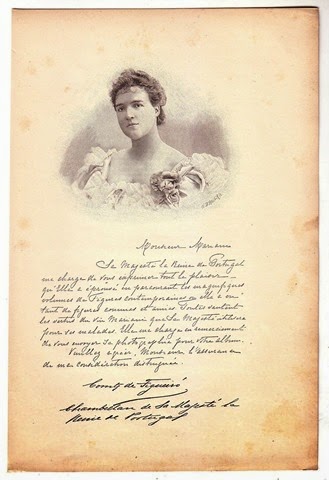 Monsieur Mariani
Sa Majesté la Reine de Portugal
me charge de vous exprimer tout le plaisir
qu'Elle a éprouvé en parcourant les magnifiques
volumes de Figures contemporaines où elle a vu
tant de figures connues et amies. Toutes vantent
les vertus du vin Mariani que Sa Majesté utilisera
pour ses malades. Elle me charge en remerciement
de vous envoyer sa photographie pour votre album.
Veuillez agréer, Monsieur l'assurance
de ma considération distinguée.
Comte de Figueiró
Chambellan de Sa Majesté la
Reine de Portugal